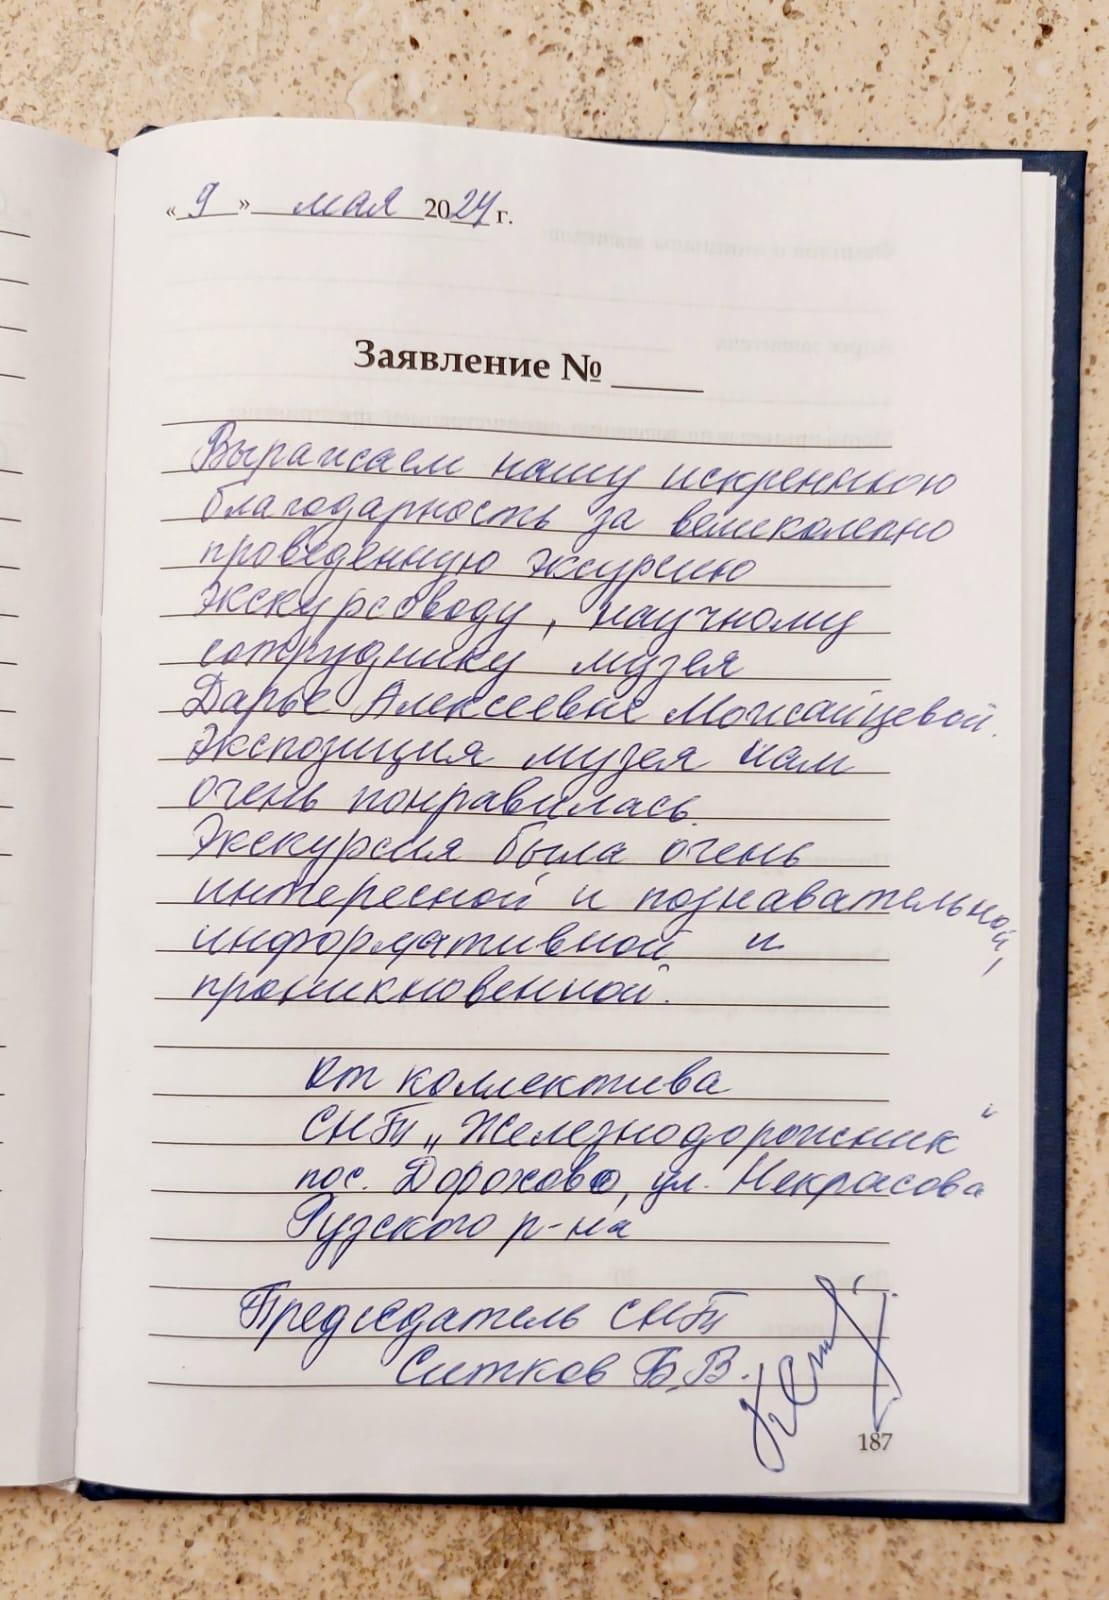 « 9 » мая 2024 г.
Заявление № ____
Выражаем нашу искреннюю
благодарность за великолепно
проведенную экскурсию
экскурсоводу, научному
сотруднику музея
Дарье Алексеевне Можсайцевой.
Экспозиция музея нам
очень понравилась.
Экскурсия была очень
интересной и познавательной,
информативной и
проникновенной.
От коллектива
СНТ „Железнодорожник"
пос. Дорохово, ул. Некрасова
Рузского р-на
Председатель СНТ
Ситков Б.В.
187